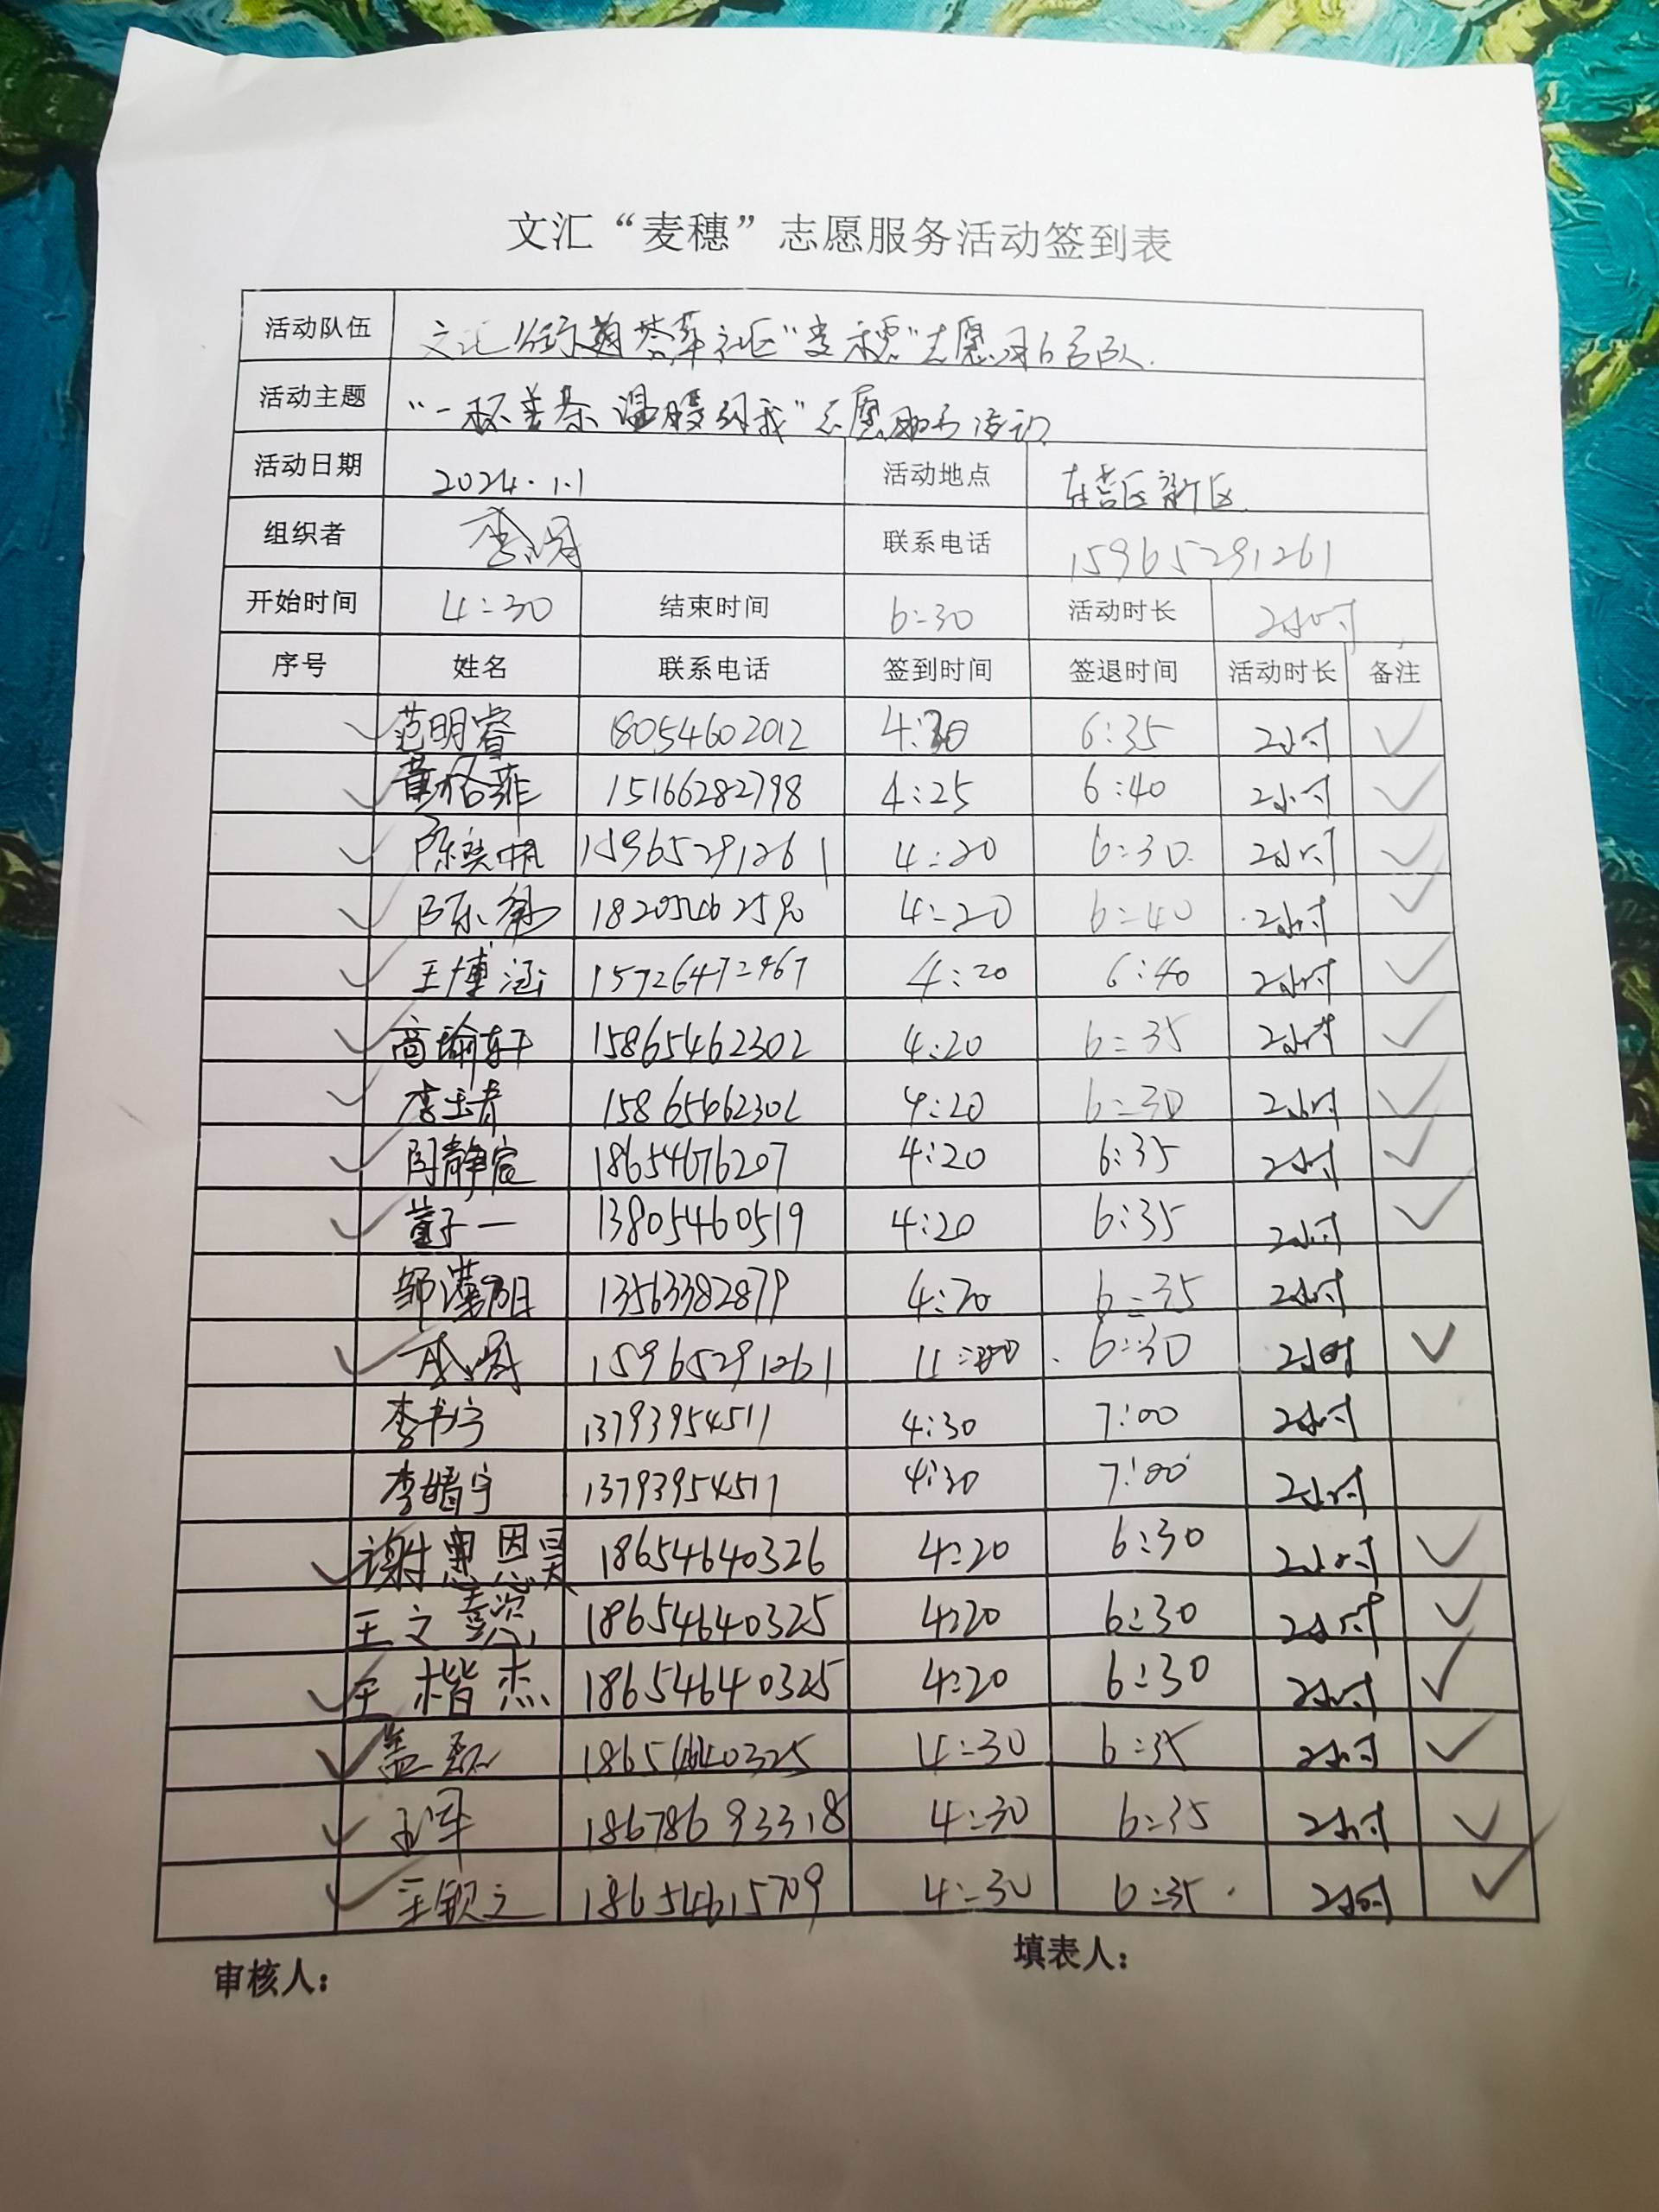 文汇“麦穗”志愿服务活动签到表
活动队伍 文汇街道 社区“麦穗”志愿服务队
活动主题 “一杯姜茶 温暖到我”志愿服务活动
活动日期 2024.1.1 活动地点 新区
组织者 李 联系电话 15965291261
开始时间 4:30 结束时间 6:30 活动时长 2小时
序号 姓名 联系电话 签到时间 签退时间 活动时长 备注
✓ 范明睿 18054602012 4:30 6:35 2小时 ✓
✓ 黄格菲 15166282798 4:25 6:40 2小时 ✓
✓ 陈奕帆 15965291261 4:20 6:30 2小时 ✓
✓ 陈 4:20 6:40 2小时 ✓
✓ 王博涵 15726472967 4:20 6:40 2小时 ✓
✓ 商瑜轩 15865462302 4:20 6:35 2小时 ✓
✓ 李 15865462302 4:20 6:30 2小时 ✓
✓ 静宸 18654676207 4:20 6:35 2小时 ✓
✓ 董子一 13805460519 4:20 6:35 2小时 ✓
邹 明 13563382879 4:20 6:35 2小时
✓ 李 15965291261 6:30 2小时 ✓
李书宁 13793954511 4:30 7:00 2小时
李婧宁 13793954511 4:30 7:00 2小时
✓ 谢惠恩昊 18654640326 4:20 6:30 2小时 ✓
王文懿 18654640325 4:20 6:30 2小时 ✓
✓ 王楷杰 18654640325 4:20 6:30 2小时 ✓
✓ 盖 18654640325 4:30 6:35 2小时 ✓
✓ 军 18678693318 4:30 6:35 2小时 ✓
✓ 王钦之 18654615709 4:30 6:35 2小时 ✓
审核人： 填表人：